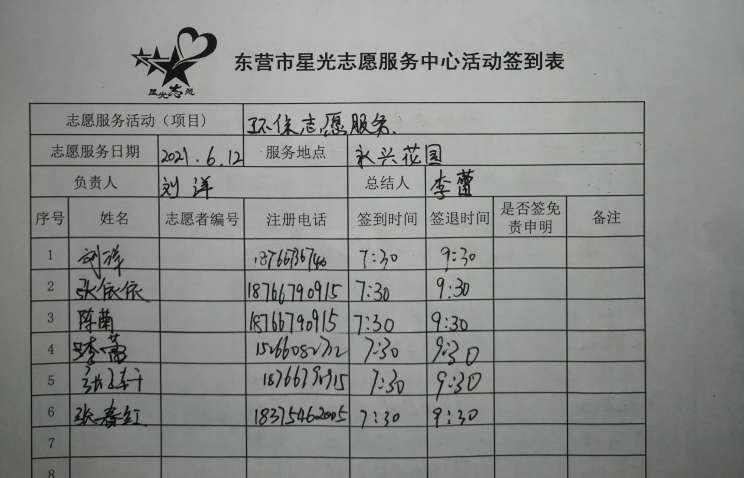 星光志愿
东营市星光志愿服务中心活动签到表
志愿服务活动（项目） 环保志愿服务.
志愿服务日期 2021.6.12 服务地点 永兴花园
负责人 刘洋 总结人 李蕾
序号 姓名 志愿者编号 注册电话 签到时间 签退时间 是否签免责申明 备注
1 刘洋 7:30 9:30
2 张依依 18766790915 7:30 9:30
3 陈菌 18766790915 7:30 9:30
4 李蕾 7:30 9:30
5 7:30 9:30
6 张春红 18375462005 7:30 9:30
7
8